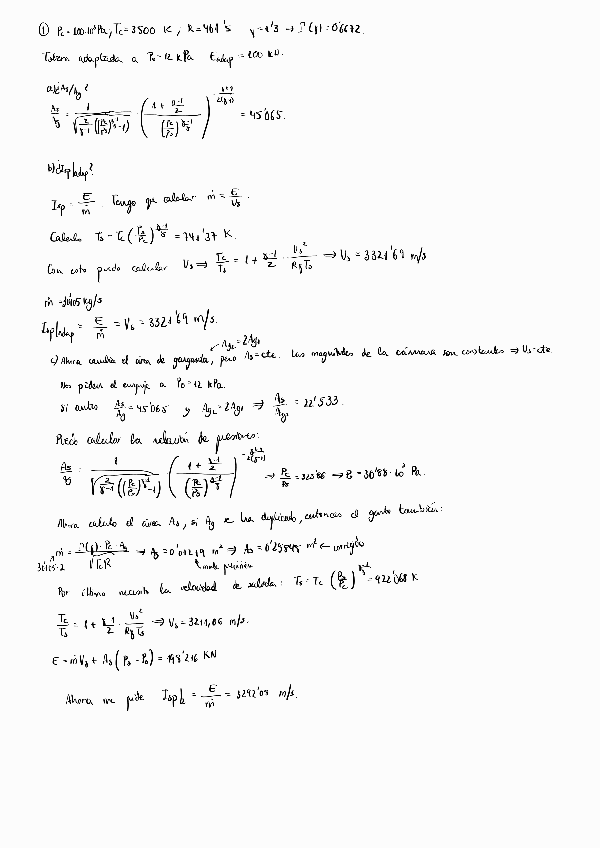 ① Pc = 100·10⁵ Pa, Tc = 3500 K, R = 461's γ = 1'3 → Γ(γ) = 0'6672.
Tobera adaptada a Po = 12 kPa Eadap = 100 kN.
a) ¿As/Ag?
As/Ag = 1/√(2/(γ-1) ((Pc/Ps)^((γ-1)/γ) - 1)) · ((1 + (γ-1)/2)/(Pc/Ps)^((γ-1)/γ))^(-(γ+1)/(2(γ-1))) = 45'065.
b) ¿Isp|adap?
Isp = E/ṁ. Tengo que calcular ṁ = E/Vs.
Calculo Ts = Tc (Ps/Pc)^((γ-1)/γ) = 741'37 K.
Con esto puedo calcular Vs ⇒ Tc/Ts = 1 + (γ-1)/2 · Vs²/(RγTs) ⇒ Vs = 3321'69 m/s
ṁ = 30'105 kg/s
Isp|adap = E/ṁ = Vs = 3321'69 m/s.
Ag2 = 2Ag1
c) Ahora cambia el área de garganta, pero As = cte. Las magnitudes de la cámara son constantes ⇒ Vs = cte.
Nos piden el empuje a Po = 12 kPa.
Si antes As/Ag = 45'065 y Ag2 = 2Ag1 ⇒ As/Ag2 = 22'533.
Puedo calcular la relación de presiones:
As/Ag = 1/√(2/(γ-1) ((Pc/Ps)^((γ-1)/γ) - 1)) · ((1 + (γ-1)/2)/(Pc/Ps)^((γ-1)/γ))^(-(γ+1)/(2(γ-1))) → Pc/Ps = 323'86 → Ps = 30'88·10³ Pa.
Ahora calculo el área As, si Ag se ha duplicado, entonces el gasto también:
ṁ = Γ(γ)·Pc·Ag/√TcR → Ag = m² ⇒ As = m² ← corregido
30'105·2
Por último necesito la velocidad de salida: Ts = Tc (Ps/Pc)^((γ-1)/γ) = 922'068 K
Tc/Ts = 1 + (γ-1)/2 · Vs²/(RγTs) ⇒ Vs = 3211,06 m/s.
E = ṁVs + As(Ps - Po) = 198'216 KN
Ahora me pide Isp|2 = E/ṁ = 3292'09 m/s.